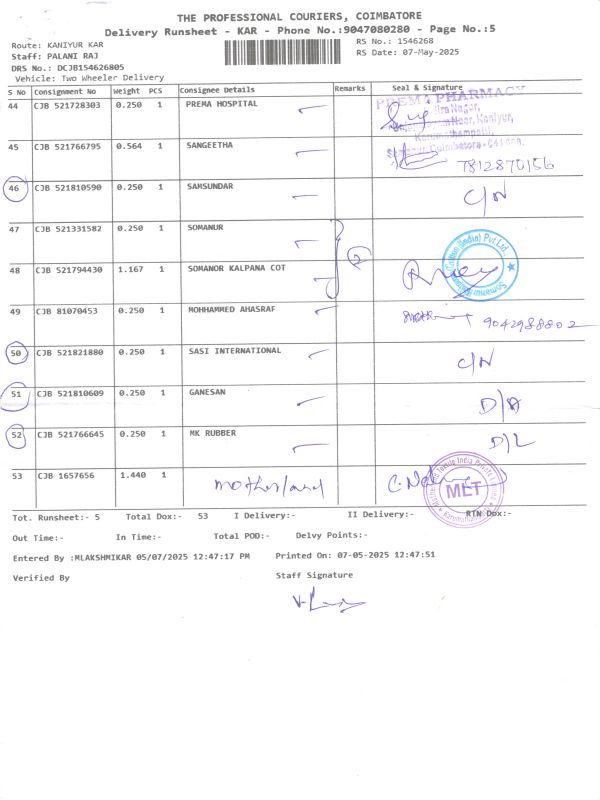 THE PROFESSIONAL COURIERS, COIMBATORE
Delivery Runsheet - KAR - Phone No.:9047080280 - Page No.:5
Route: KANIYUR KAR
RS No.: 1546268
Staff: PALANI RAJ
RS Date: 07-May-2025
DRS No.: DCJB154626805
Vehicle: Two Wheeler Delivery
S No Consignment No Weight PCS Consignee Details Remarks Seal & Signature
44 CJB 521728303 0.250 1 PREMA HOSPITAL PREMA PHARMACY
45 CJB 521766795 0.564 1 SANGEETHA 7812870156
46 CJB 521810590 0.250 1 SAMSUNDAR C/N
47 CJB 521331582 0.250 1 SOMANUR
48 CJB 521794430 1.167 1 SOMANOR KALPANA COT
49 CJB 81070453 0.250 1 MOHHAMMED AHASRAF 9042988802
50 CJB 521821880 0.250 1 SASI INTERNATIONAL C/N
51 CJB 521810609 0.250 1 GANESAN D/A
52 CJB 521766645 0.250 1 MK RUBBER D/L
53 CJB 1657656 1.440 1 motherland MLT
Tot. Runsheet:- 5 Total Dox:- 53 I Delivery:- II Delivery:- RTN Dox:-
Out Time:- In Time:- Total POD:- Delvy Points:-
Entered By :MLAKSHMIKAR 05/07/2025 12:47:17 PM Printed On: 07-05-2025 12:47:51
Verified By Staff Signature